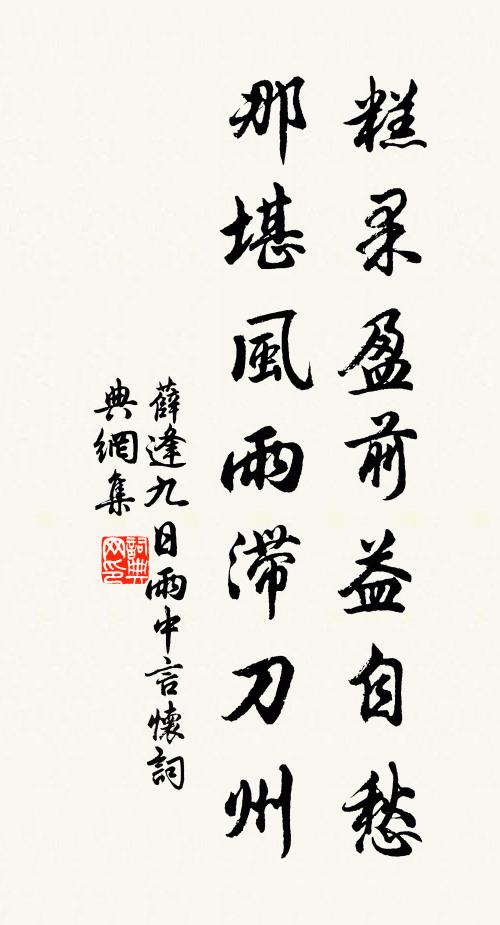 糕果盈前益自愁
那堪風雨滯刀州
薛逢九日雨中言懷詞
典網集
詞典網印